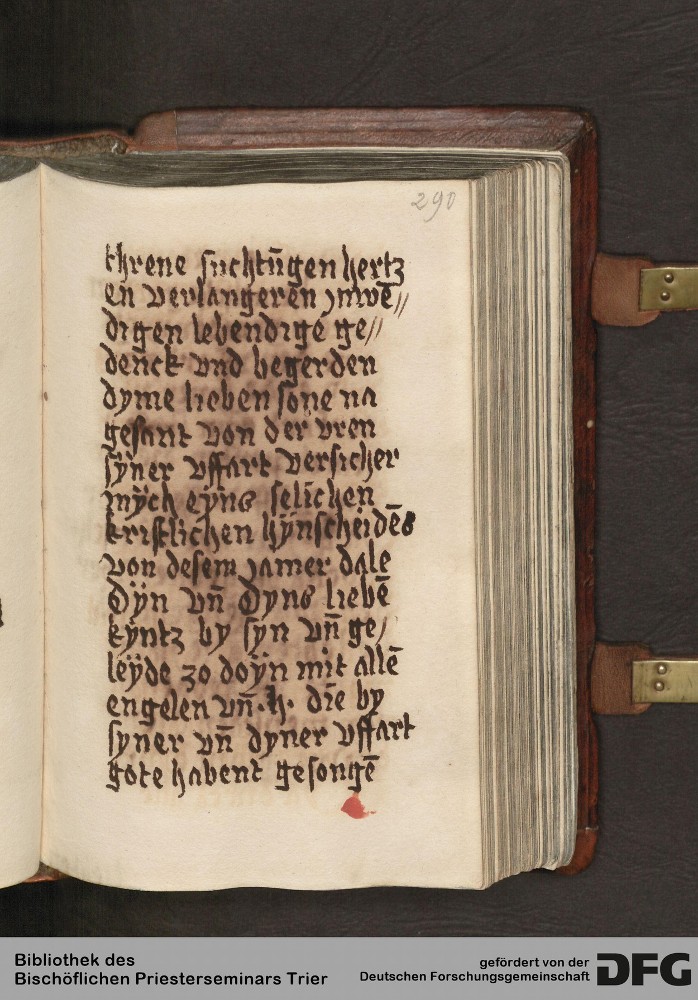 290
threne suchtūgen hertz
en verlangeren jnwē//
digen lebendige ge//
denck vnd begerden
dyme lieben sone na
gesant von der vren
sÿner vffart versicher
mÿch eÿns selichen
kristlichen hÿnscheidēs
von desem jamer dale
Dÿn vn̄ Dyns liebē
kÿntz by syn vn̄ ge/
leÿde zo doÿn mit allē
engelen vn̄ .h. die by
syner vn̄ dyner vffart
gote habent gesongē
Bibliothek des
Bischöflichen Priesterseminars Trier
gefördert von der
Deutschen Forschungsgemeinschaft DFG